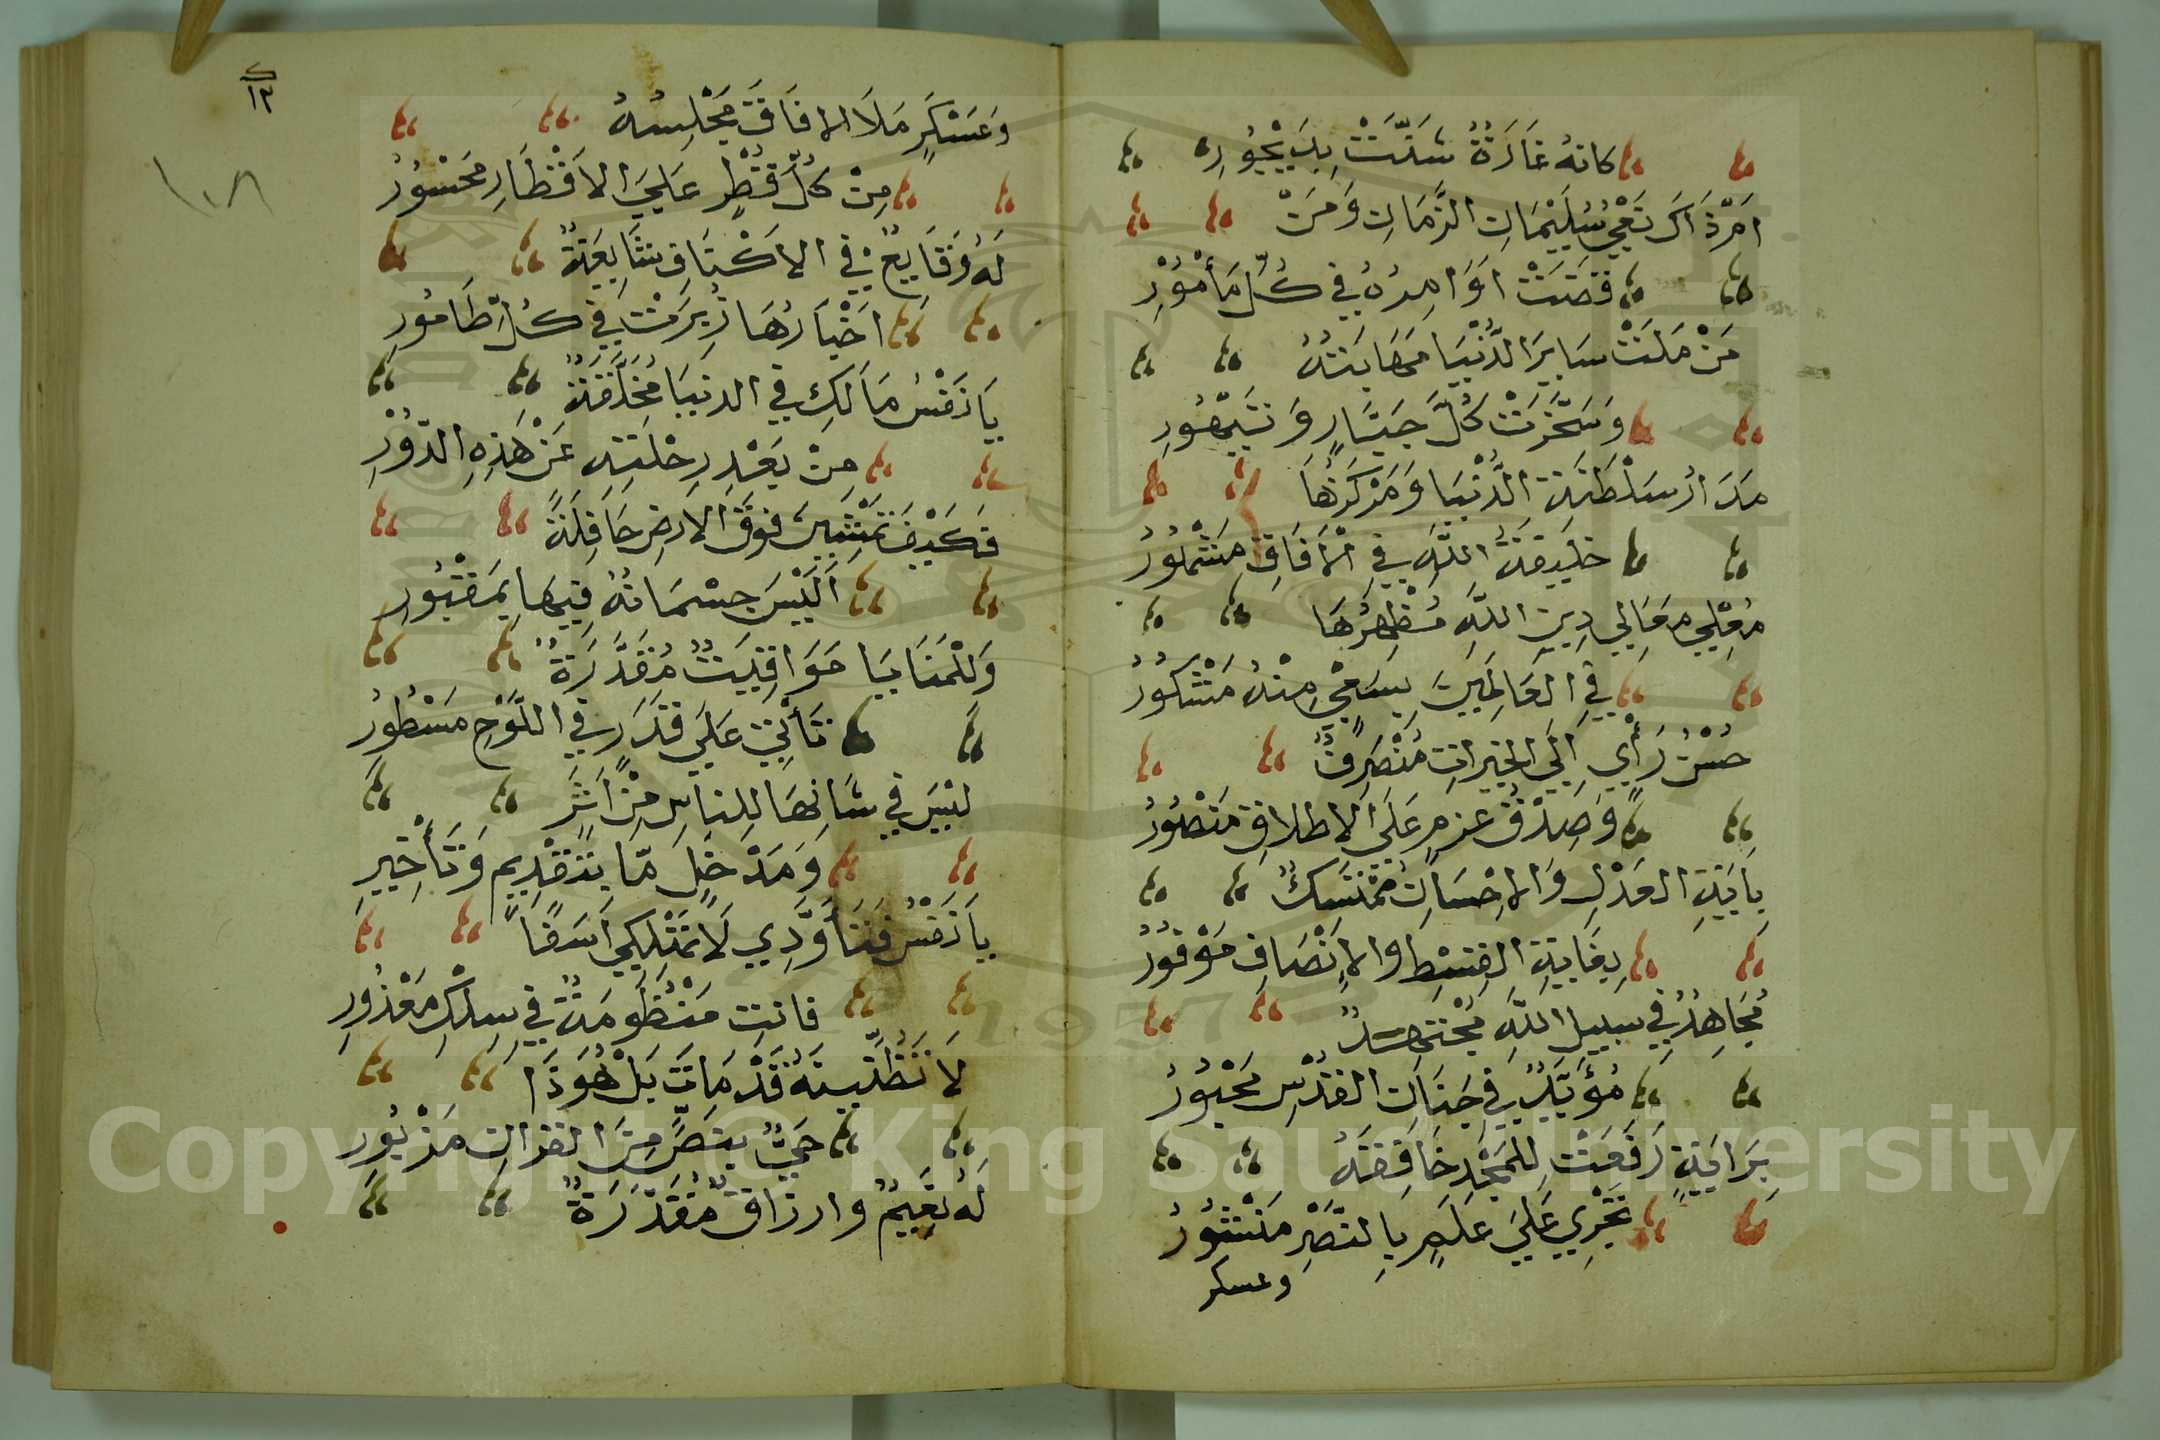 كانه غَارَةٌ شَنَّتْ بِدَيْجُورِ
امَرّذَاكَ نَعْيُ سُلَيْمَانِ الزَّمَانِ وَمَنْ
قَضَتْ اوَامِرُهُ فِي كُلِّ مَأْمُوْرِ
مَنْ مَلَئَتْ سَايِرَ الدُّنْيَا مَهَابَتُهُ
وَسَخَّرَتْ كُلَّ جَبَّارٍ وَتَيْهُورِ
مَدَارُ سَلْطَنَةِ الدُّنْيَا وَمَرْكَزُهَا
خليفَةُ اللَّهِ فِي الْآفَاقِ مَشْهُورُ
مُعْلِي مَعَالِي دِينِ اللَّهِ مُظْهِرُهَا
فِي العَالَمِينَ بِسَعْيٍ مِنْهُ مَشْكُورُ
حُسْنُ رَأْيٍ اِلَي الخَيراتِ مُنْصَرِفٌ
وَصِدْقُ عزمٍ عَلَى الاطلاقِ مَنْصُورُ
بِايَةِ العَدْلِ وَالاِحْسَانِ مُمْتَسِكٌ
بِغَايَةِ القِسْطِ والاِنْصَافِ مَوْفُورُ
مُجَاهِدٌ فِي سبيلِ اللَّهِ مُجْتَهِدٌ
مُؤَيَّدٌ فِي جَنَانِ القُدْسِ مَحْبُورُ
بِرَايَةٍ رَفَعَتْ لِلمَجْدِ خَافِقَةً
تَجْرِي عَلَيَ عَلَمٍ بِالنَّصْرِ مَنْشُورُ
وعسكر
١٢
١٠٨
وَعَسْكَرٍ مَلَأَ الافَاقَ مَجْلِسُهُ
مِنْ كُلِّ قُطْرٍ عَلَيَ الاَقْطَارِ مَحْسُورُ
لَهُ وَقَايِعُ فِي الاكْنَافِ شَايِعَةٌ
اخْبَارُهَا زُبِرَتْ فِي كُلِّ طَامُورِ
يَا نَفْسُ مَالَكِ فِي الدنيَا مُخَلَّفَةٌ
مِنْ بَعْدِ رِحْلَتِهِ عَنْ هَذِهِ الدُّوْرِ
فَكَيْفَ تَمْشِيِنَ فَوْقَ الاَرضِ حَافِلَةً
اَلَيْسَ جِسْمَانُهُ فِيهَا بِمَقْبُورِ
وَلِلْمَنَايَا مَوَاقِيتٌ مُقَدَّرَةٌ
تَأْتِي عَلَيَ قَدَرٍ فِي اللَّوْحِ مَسْطُورُ
ليْسَ فِي شَانِهَا لِلناسِ مِنْ اَثَرٍ
وَمَدْخَلٍ مَّا بِتَقْدِيمٍ وَتَأْخِيرِ
يَا نَفْسُ فَتَأَوَّدِي لَا تَهْلِكِي اَسَفًا
فانتِ مَنْظُومَةٌ فِي سِلْكِ مَعْذُورِ
لَا تَظُنِّيِنَهُ قَدْ مَاتَ بَلْ هُوَ ذَا
حَيٌّ بِنَصٍّ مِنَ القرانِ مَزْبُورِ
لَهُ نَعِيْمٌ وارزاقٌ مُقَدَّرَةٌ